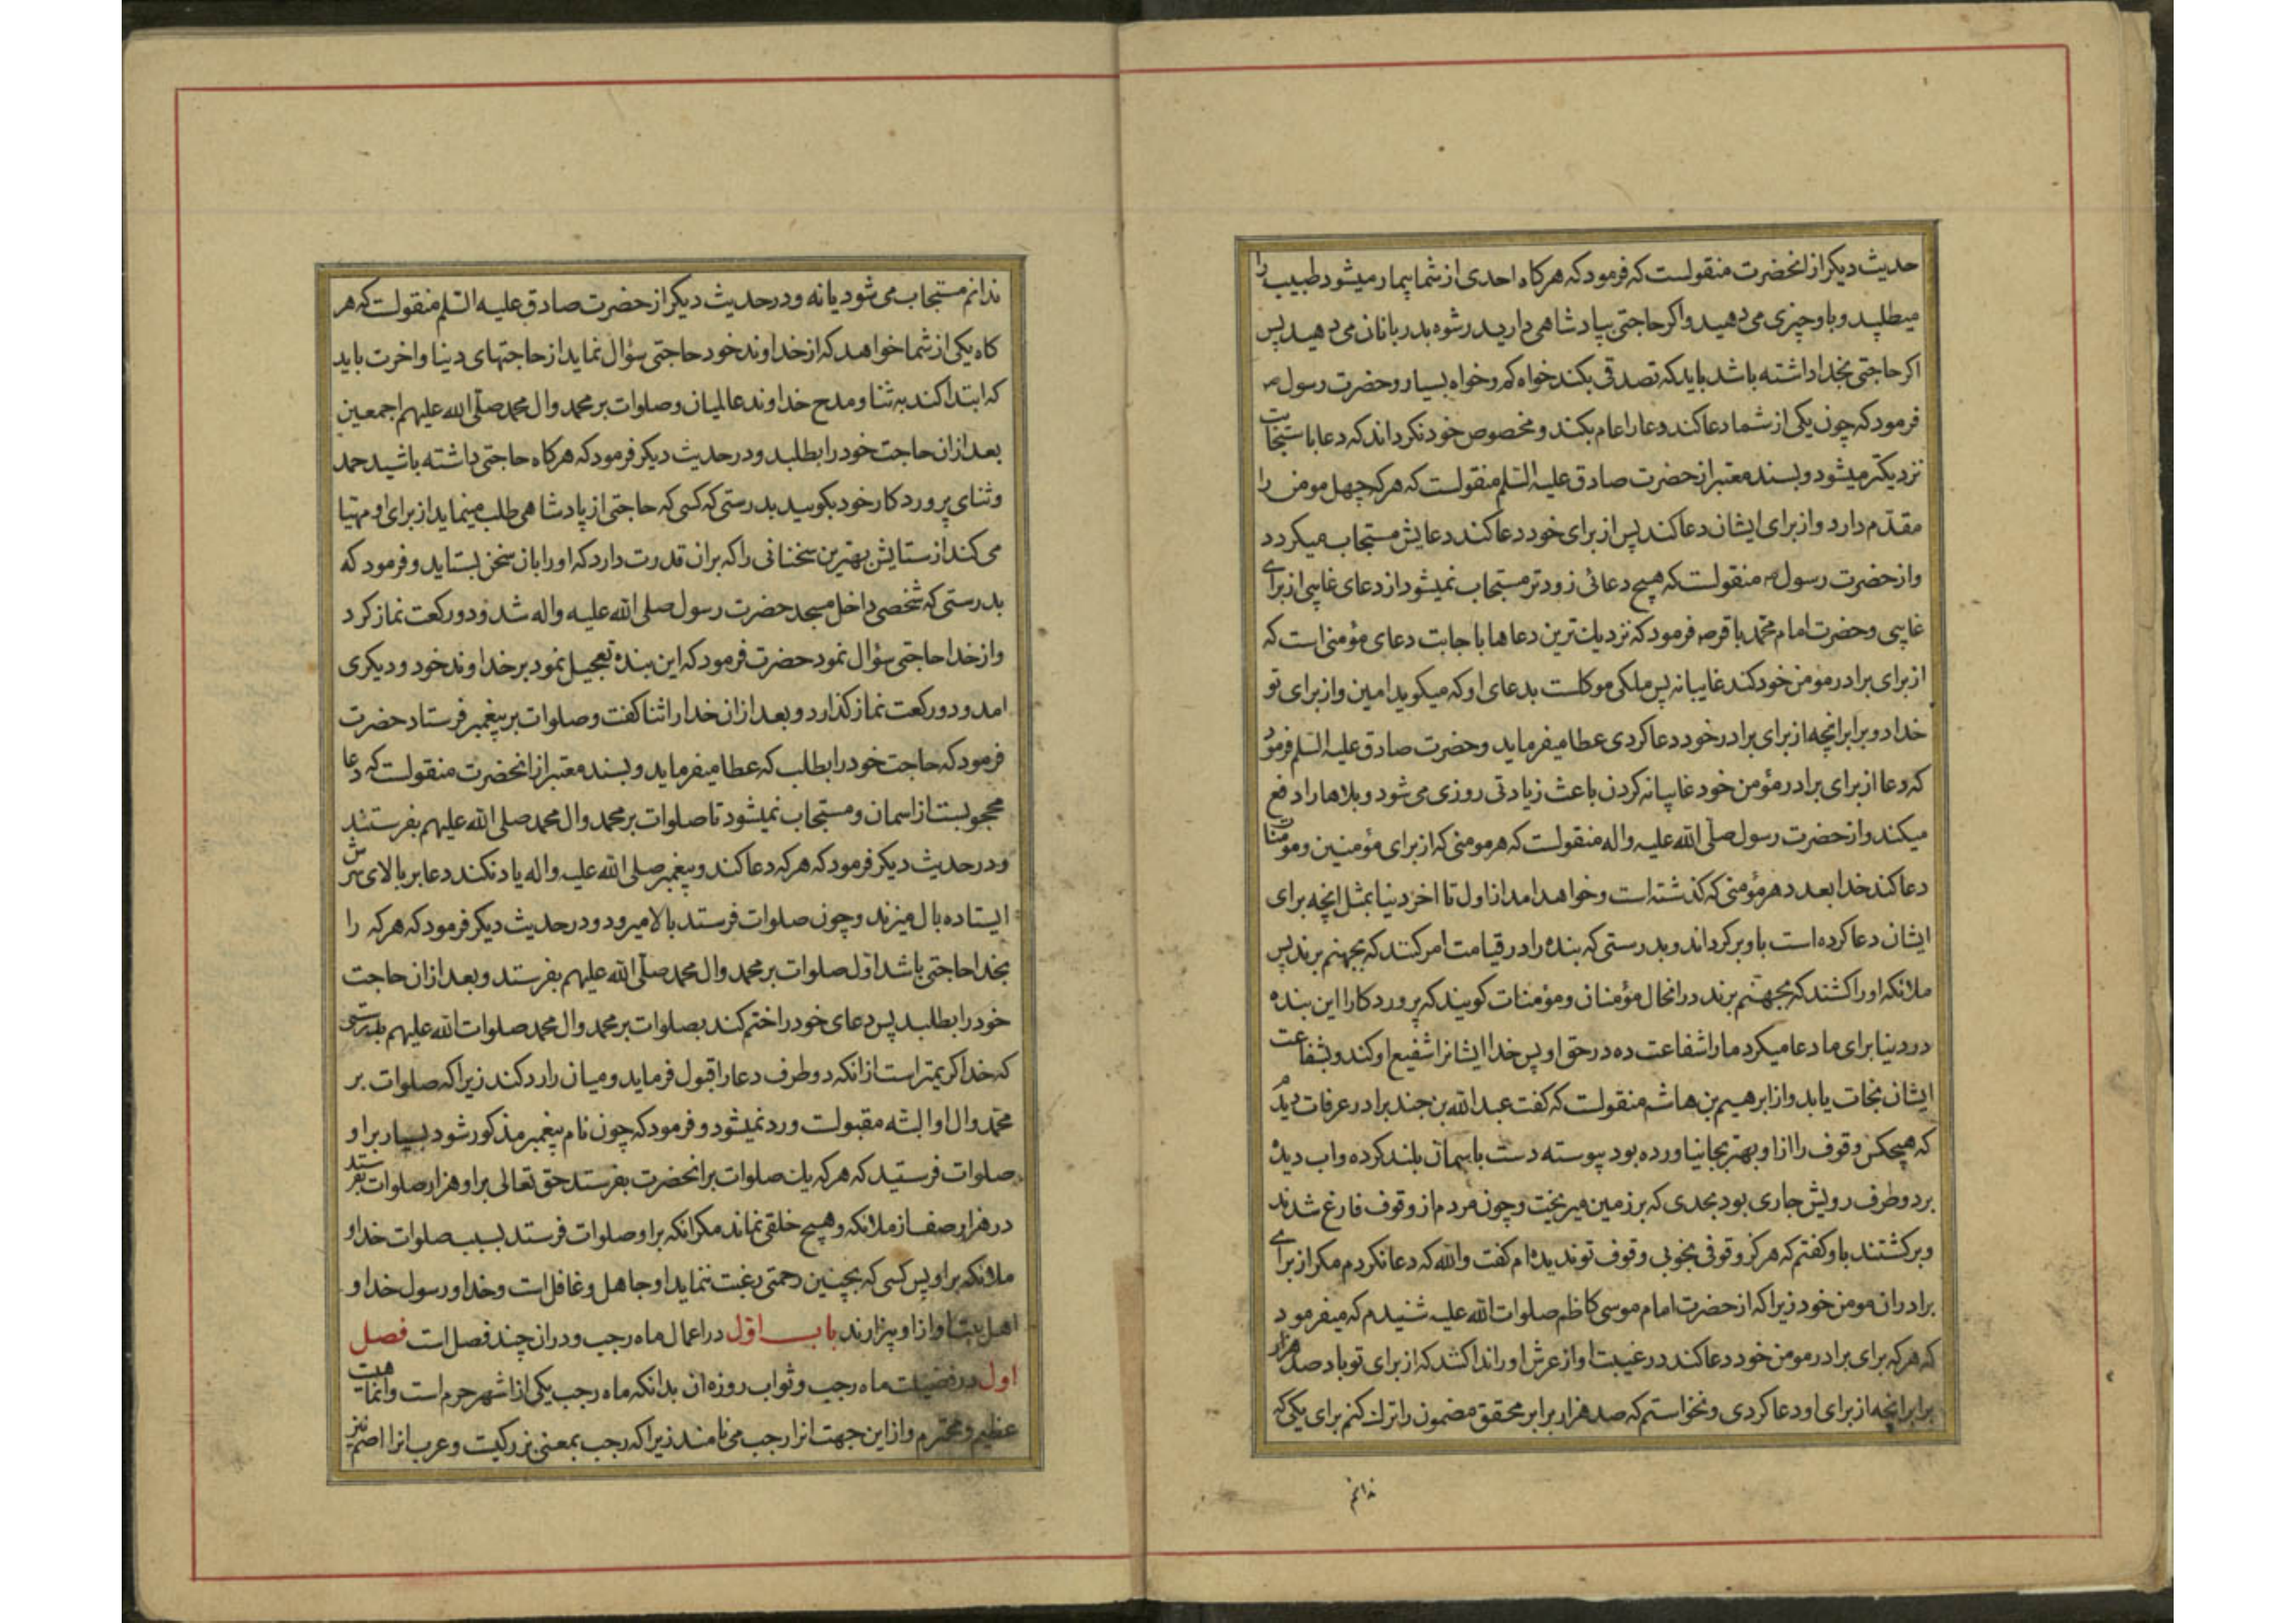 حدیث دیکر از انحضرت منقولست که فرمود که هرکاه احدی از شما بیمار میشود طبیب را
میطلبد و باو چیزی می دهید و اکر حاجتی بپادشاهی دارید رشوه بدربانان می دهید پس
اکر حاجتی بخدا داشته باشد باید که تصدقی بکند خواه کم و خواه بسیار و حضرت رسول ص
فرمود که چون یکی از شما دعا کند دعا را عام بکند و مخصوص خود نکرداند که دعا باستجابت
نزدیکتر میشود و بسند معتبر از حضرت صادق علیه السلم منقولست که هرکه چهل مومن را
مقدم دارد و از برای ایشان دعا کند پس از برای خود دعا کند دعایش مستجاب میکردد
و از حضرت رسول ص منقولست که هیچ دعائی زودتر مستجاب نمیشود از دعای غایبی از برای
غایبی و حضرت امام محمد باقر ص فرمود که نزدیک ترین دعاها باجابت دعای مؤمنی است که
از برای برادر مؤمن خود کند غایبانه پس ملکی موکلست بدعای او که میکوید امین و از برای تو
خدا دو برابر انچه از برای برادر خود دعا کردی عطا میفرماید و حضرت صادق علیه السلم فرمود
که دعا از برای برادر مؤمن خود غایبانه کردن باعث زیادتی روزی می شود و بلاها را دفع
میکند و از حضرت رسول صلی الله علیه واله منقولست که هر مومنی که از برای مؤمنین و مؤمنات
دعا کند خدا بعدد هر مؤمنی که کذشته است و خواهد امد از اول تا اخر دنیا بمثل انچه برای
ایشان دعا کرده است باو برکرداند و بدرستی که بنده را در قیامت امر کنند که بجهنم برند پس
ملائکه او را کشند که بجهنم برند در انحال مؤمنان و مؤمنات کویند که پروردکارا این بنده
در دنیا برای ما دعا میکرد ما را شفاعت ده در حق او پس خدا ایشانرا شفیع او کند و بشفاعت
ایشان نجات یابد و از ابرهیم بن هاشم منقولست که کفت عبد الله بن جندب را در عرفات دیدم
که هیچکس وقوف را از او بهتر بجا نیاورده بود پیوسته دست باسمان بلند کرده و اب دیده
بر دو طرف رویش جاری بود بحدی که بر زمین میریخت و چون مردم از وقوف فارغ شدند
و برکشتند باو کفتم که هرکز وقوفی بخوبی وقوف تو ندیده ام کفت والله که دعا نکردم مکر از برای
برادران مومن خود زیرا که از حضرت امام موسی کاظم صلوات الله علیه شنیدم که میفرمود
که هرکه برای برادر مومن خود دعا کند در غیبت او از عرش او را ندا کنند که از برای تو باد صد هزار
برابر انچه از برای او دعا کردی و نخواستم که صد هزار برابر محقق مضمون را ترک کنم برای یکی که
ندانم
ندانم مستجاب می شود یا نه و در حدیث دیکر از حضرت صادق علیه السلم منقولست که هر
کاه یکی از شما خواهد که از خداوند خود حاجتی سؤال نماید از حاجتهای دنیا و اخرت باید
که ابتدا کند به ثنا و مدح خداوند عالمیان و صلوات بر محمد وال محمد صلی الله علیهم اجمعین
بعد از ان حاجت خود را بطلبد و در حدیث دیکر فرمود که هرکاه حاجتی داشته باشید حمد
و ثنای پروردکار خود بکویید بدرستی که کسی که حاجتی از پادشاهی طلب مینماید از برای او مهیا
می کند از ستایش بهترین سخنانی را که بران قدرت دارد که او را بان سخن بستاید و فرمود که
بدرستی که شخصی داخل مسجد حضرت رسول صلی الله علیه واله شد و دو رکعت نماز کرد
و از خدا حاجتی سؤال نمود حضرت فرمود که این بنده تعجیل نمود بر خداوند خود و دیکری
امد و دو رکعت نماز کذارد و بعد از ان خدا را ثنا کفت و صلوات بر پیغمبر فرستاد حضرت
فرمود که حاجت خود را بطلب که عطا میفرماید و بسند معتبر از انحضرت منقولست که دعا
محجوبست از اسمان و مستجاب نمیشود تا صلوات بر محمد وال محمد صلی الله علیهم بفرستند
و در حدیث دیکر فرمود که هرکه دعا کند و پیغمبر صلی الله علیه واله یاد نکند دعا بر بالای سرش
ایستاده بال میزند و چون صلوات فرستد بالا میرود و در حدیث دیکر فرمود که هرکه را
بخدا حاجتی باشد اول صلوات بر محمد وال محمد صلی الله علیهم بفرستد و بعد از ان حاجت
خود را بطلبد پس دعای خود را ختم کند بصلوات بر محمد وال محمد صلوات الله علیهم بدرستی
که خدا کریمتر است از انکه دو طرف دعا را قبول فرماید و میان را رد کند زیرا که صلوات بر
محمد وال او البته مقبولست و رد نمیشود و فرمود که چون نام پیغمبر مذکور شود بسیار بر او
صلوات فرستید که هرکه یک صلوات بر انحضرت بفرستد حق تعالی بر او هزار صلوات بفرستد
در هزار صف از ملائکه و هیچ خلقی نماند مکر انکه بر او صلوات فرستد بسبب صلوات خدا و
ملائکه بر او پس کسی که بچنین رحمتی رغبت ننماید او جاهل و غافل است و خدا و رسول خدا و
اهل بیت او از او بیزارند باب اول در اعمال ماه رجب و دران چند فصل است فصل
اول در فضیلت ماه رجب و ثواب روزه ان بدانکه ماه رجب یکی از اشهر حرم است و انماهیت
عظیم و محترم و از این جهت انرا رجب می نامند زیرا که رجب بمعنی بزرکیت و عرب انرا اصم نیز